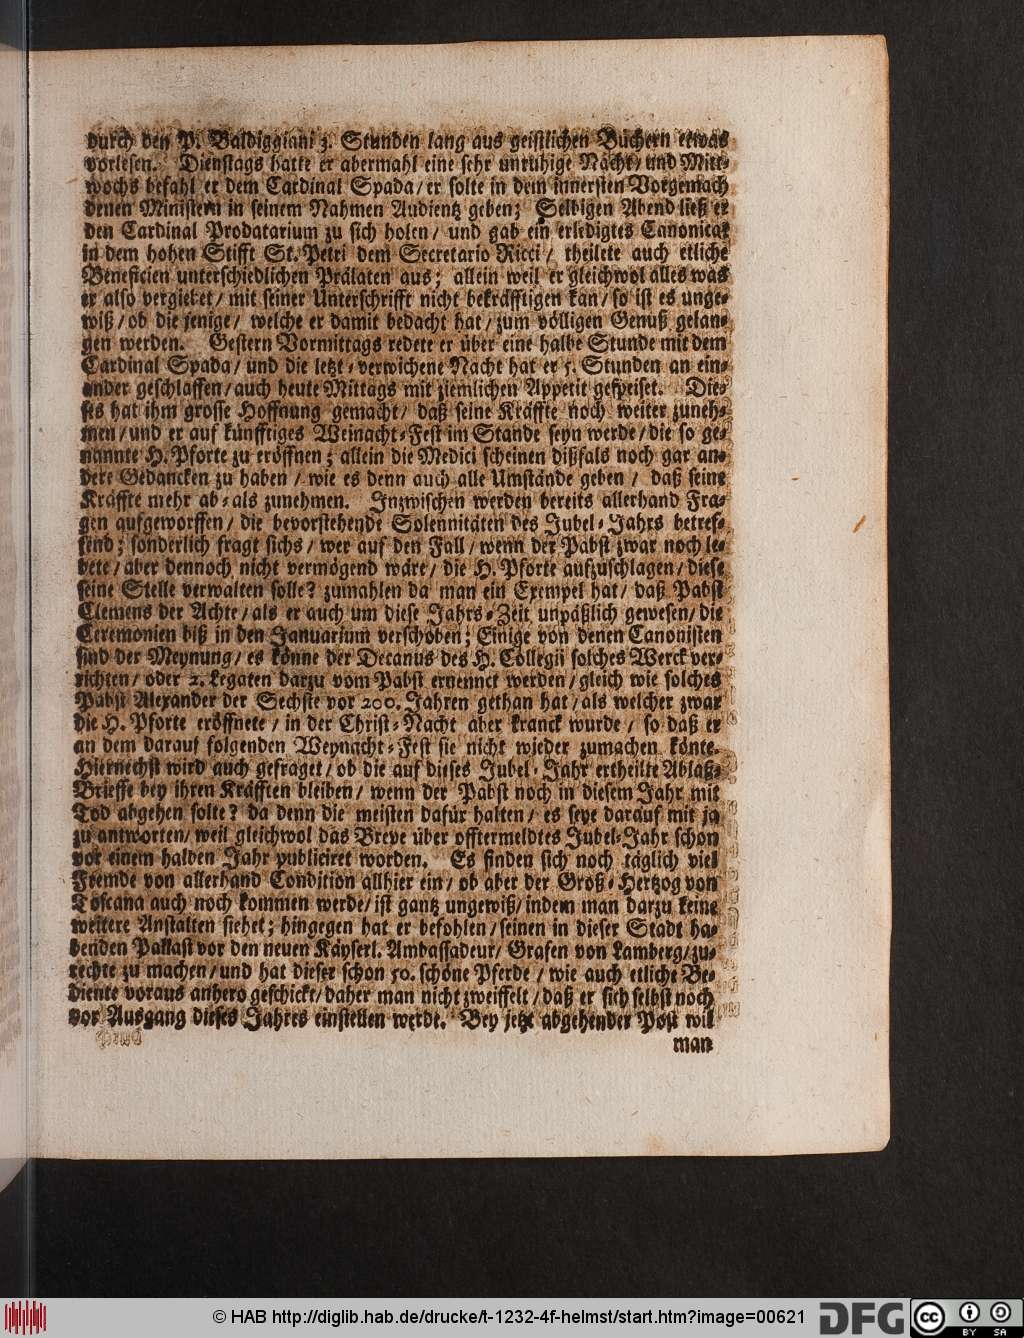 durch den P. Baldiggiani 3. Stunden lang aus geistlichen Büchern etwas
vorlesen. Dienstags hatte er abermahl eine sehr unruhige Nacht/ und Mitt-
wochs befahl er dem Cardinal Spada/ er solte in dem innersten Vorgemach
denen Ministern in seinem Nahmen Audientz geben; Selbigen Abend ließ er
den Cardinal Prodatarium zu sich holen/ und gab ein erledigtes Canonicat
in dem hohen Stifft St. Petri dem Secretario Ricci/ theilete auch etliche
Beneficien unterschiedlichen Prälaten aus; allein weil er gleichwol alles was
er also vergiebet/ mit seiner Unterschrifft nicht bekräfftigen kan/ so ist es unge-
wiß/ ob die jenige/ welche er damit bedacht hat/ zum völligen Genuß gelan-
gen werden. Gestern Vormittags redete er über eine halbe Stunde mit dem
Cardinal Spada/ und die letzt-verwichene Nacht hat er 5. Stunden an ein-
ander geschlaffen/ auch heute Mittags mit ziemlichen Appetit gespeiset. Die-
ses hat ihm grosse Hoffnung gemacht/ daß seine Kräffte noch weiter zuneh-
men/ und er auf künfftiges Weinacht-Fest im Stande seyn werde/ die so ge-
nannte H. Pforte zu eröffnen; allein die Medici scheinen dißfals noch gar an-
dere Gedancken zu haben/ wie es denn auch alle Umstände geben/ daß seine
Kräffte mehr ab-als zunehmen. Inzwischen werden bereits allerhand Fra-
gen aufgeworffen/ die bevorstehende Solennitäten des Jubel-Jahrs betref-
fend; sonderlich fragt sichs/ wer auf den Fall/ wenn der Pabst zwar noch le-
bete/ aber dennoch nicht vermögend wäre/ die H. Pforte aufzuschlagen/ diese
seine Stelle verwalten solle? zumahlen da man ein Exempel hat/ daß Pabst
Clemens der Achte/ als er auch um diese Jahrs-Zeit unpäßlich gewesen/ die
Ceremonien biß in den Januarium verschoben; Einige von denen Canonisten
sind der Meynung/ es könne der Decanus des H. Collegii solches Werck ver-
richten/ oder 2. Legaten darzu vom Pabst ernennet werden/ gleich wie solches
Pabst Alexander der Sechste vor 200. Jahren gethan hat/ als welcher zwar
die H. Pforte eröffnete/ in der Christ-Nacht aber kranck wurde/ so daß er
an dem darauf folgenden Weynacht-Fest sie nicht wieder zumachen könte.
Hiernechst wird auch gefraget/ ob die auf dieses Jubel-Jahr ertheilte Ablaß-
Brieffe bey ihren Kräfften bleiben/ wenn der Pabst noch in diesem Jahr mit
Tod abgehen solte? da denn die meisten dafür halten/ es seye darauf mit ja
zu antworten/ weil gleichwol das Breve über offtermeldtes Jubel-Jahr schon
vor einem halben Jahr publiciret worden. Es finden sich noch täglich viel
Fremde von allerhand Condition allhier ein/ ob aber der Groß-Hertzog von
Toscana auch noch kommen werde/ ist gantz ungewiß/ indem man darzu keine
weitere Anstalten siehet; hingegen hat er befohlen/ seinen in dieser Stadt ha-
benden Pallast vor den neuen Käyserl. Ambassadeur/ Grafen von Lamberg/ zu-
rechte zu machen/ und hat dieser schon 50. schöne Pferde/ wie auch etliche Be-
diente voraus anhero geschickt/ daher man nicht zweiffelt/ daß er sich selbst noch
vor Ausgang dieses Jahres einstellen werde. Bey jetzt abgehender Post wil
man
© HAB http://diglib.hab.de/drucke/t-1232-4f-helmst/start.htm?image=00621
DFG
cc
BY SA